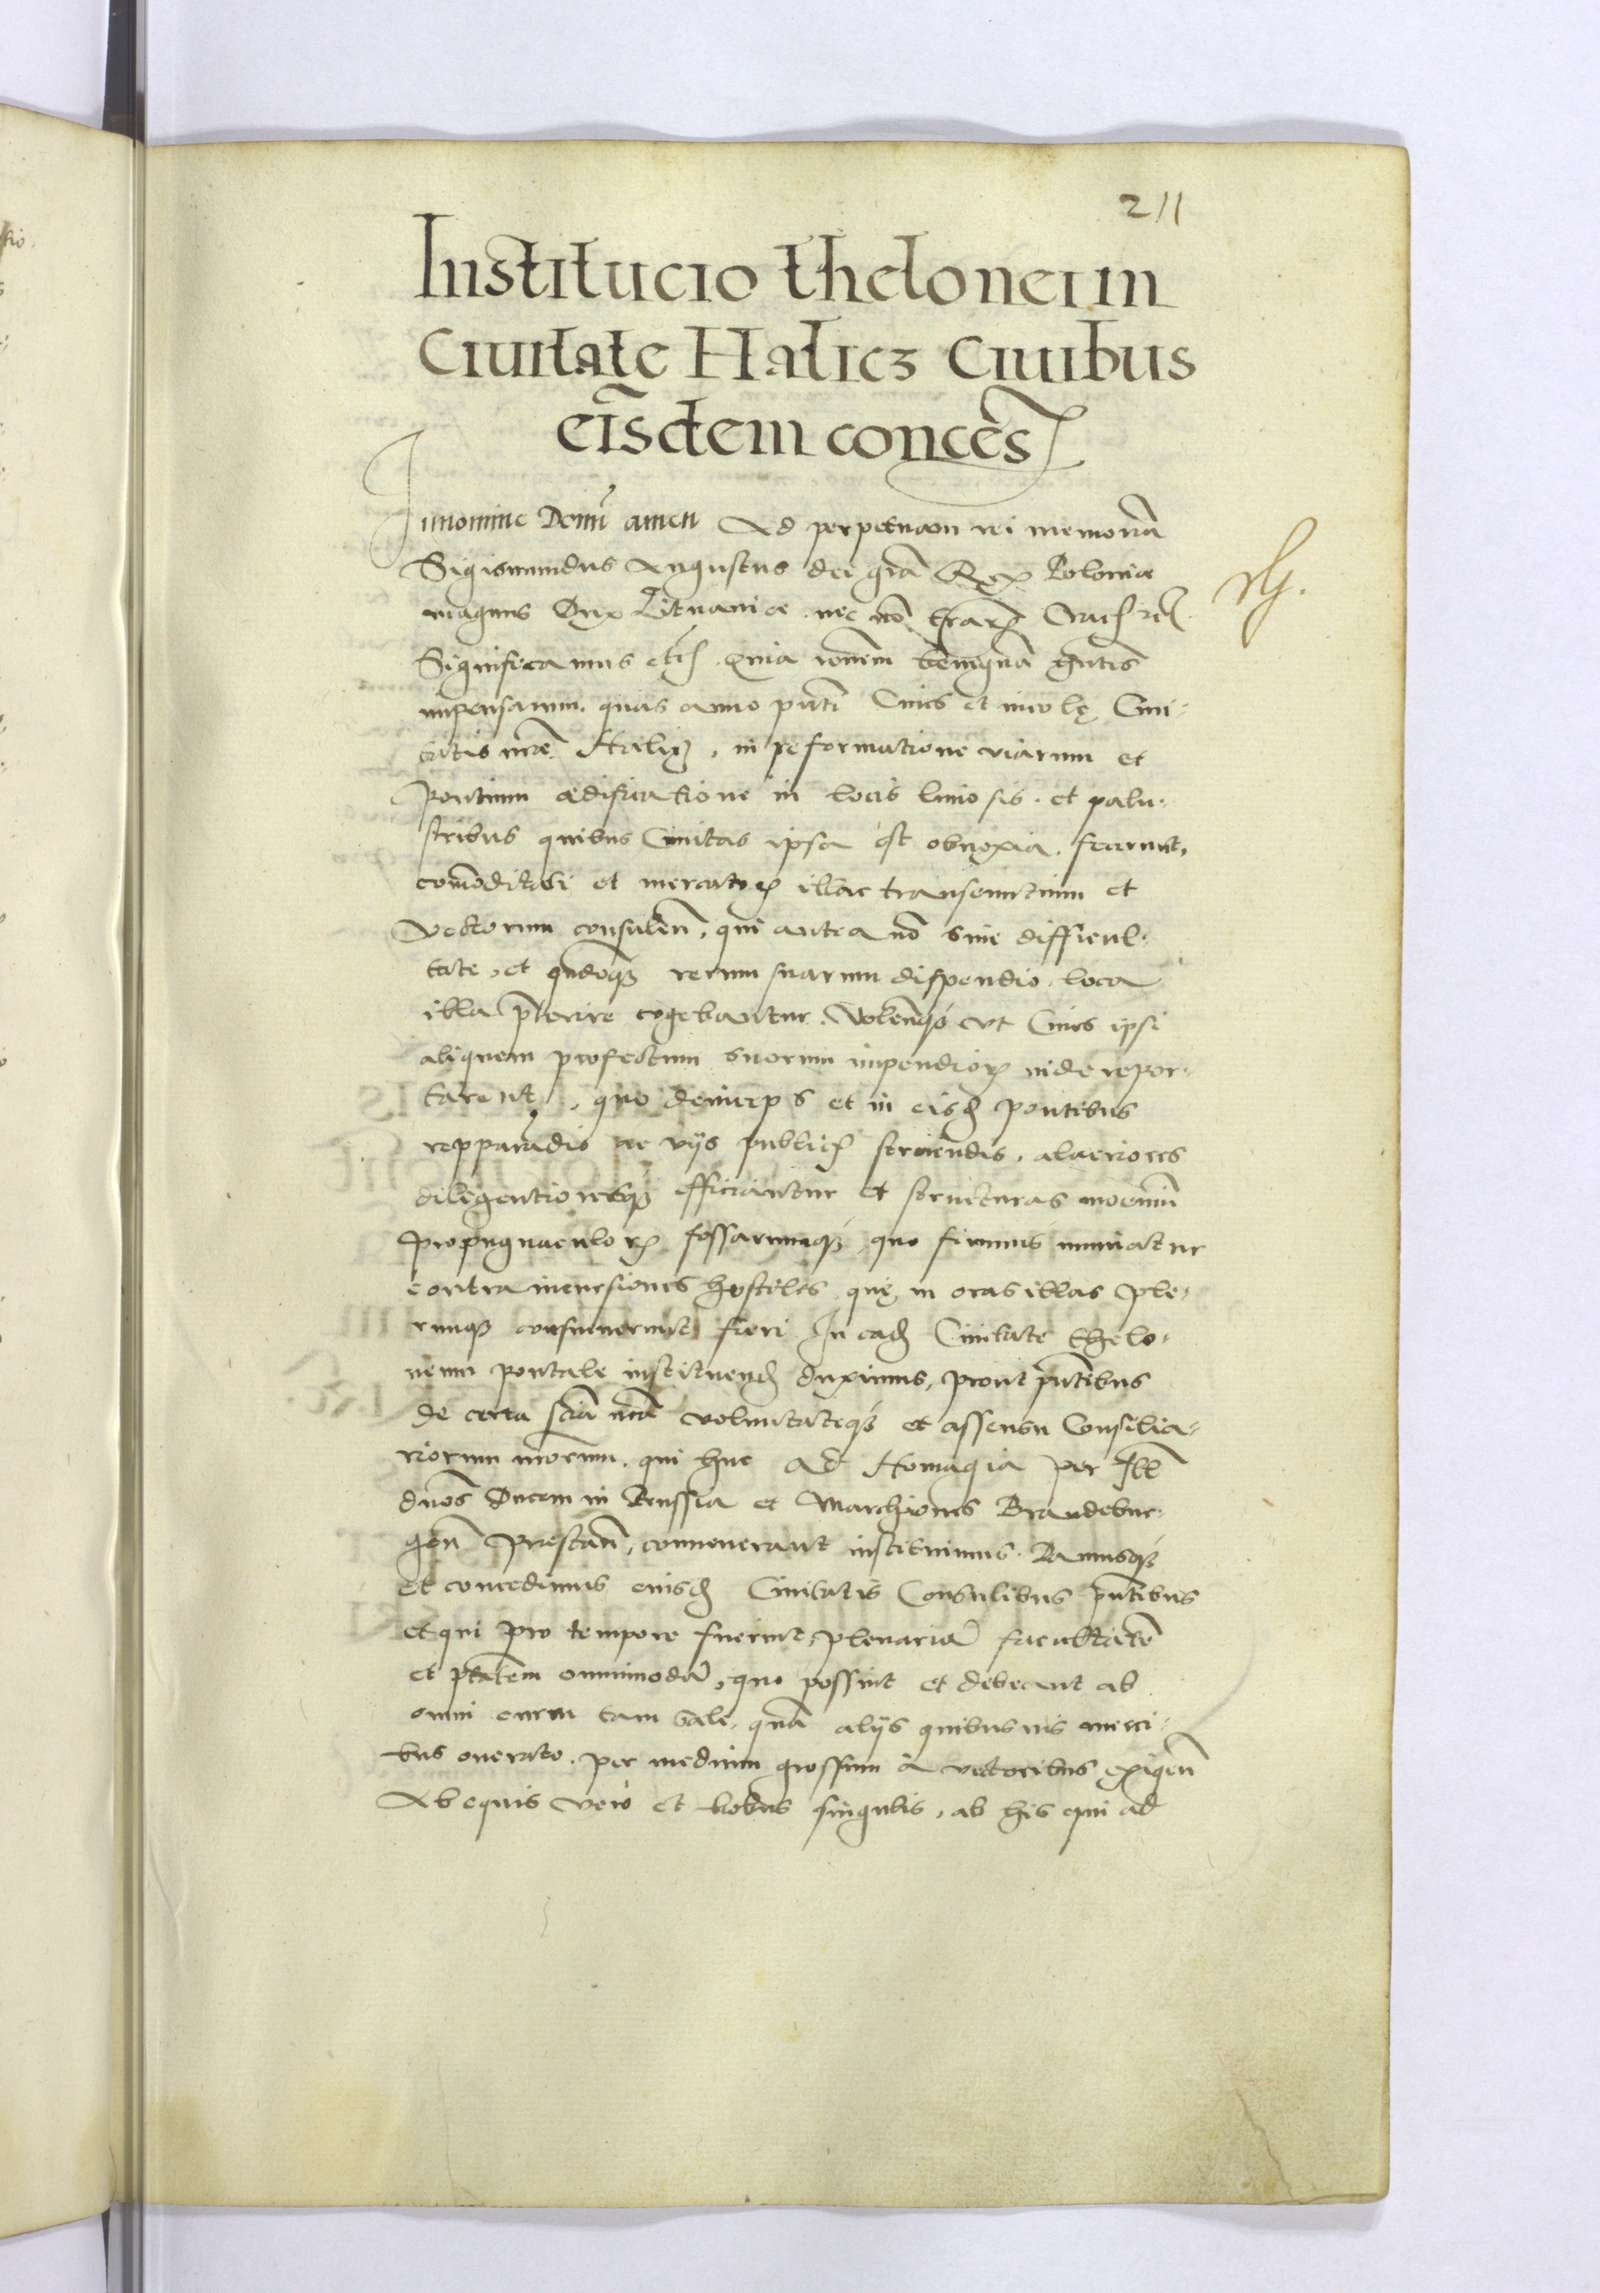 211
Institucio thelonei in
Ciuitate Halicz Ciuibus
eisdem conces
In nomine Domi amen Ad perpetuam rei memoriā
Sigismundus Augustus dei grā Rex Poloniæ
magnus Dux Lituaniæ nec nō Terarȝ Crac etc
Significamus etc Quia ronem benignā hntes
impensarum, quas anno pnti Ciues et incolę Ciui-
tatis nrē Halicz, in reformatione viarum et
Pontium ædificatione in locis limosis et palu-
stribus quibus Ciuitas ipsa est obnoxia, fecerunt,
com̄oditati et mercatorȝ illac transeuntium et
vectorum consulen̄, qui antea nō sine difficul-
tate, et qn̄doqȝ rerum suarum dispendio, loca
illa p̄terire cogebantur. Volen̄qȝ vt Ciues ipsi
aliquem profectum suorum impendiorȝ inde repor-
tarent, quo deinceps et in eisd pontibus
repparādis ac vijs publicis sterniendis, alacriores
diligentioresqȝ efficiantur et structuras moeniū
Propugnaculorȝ fossarumqȝ, quo firmius muniatur
contra incursiones hostiles, quę in oras illas ple-
rumqȝ consueuerunt fieri In ead Ciuitate thelo-
neum pontale instituend duximus, prout pn̄tibus
de certa sciā nrā voluntateqȝ et assensu Consilia-
riorum nrorum, qui huc ad Homagia per Ill
dnos Ducem in Prussia et Marchiones Brandebur-
gen̄ Prestan̄, conuenerant instituimus. Damusqȝ
et concedimus eiusd Ciuitatis Consulibus pn̄tibus
et qui pro tempore fuerint, plenariā facultatē
et ptatem omnimodā, quo possint et debeant ab
omni curru tam sale, quā alijs quibusuis merci-
bus onerato, per medium grossum a vectoribus exigen̄
Ab equis vero et bobus singulis, ab his qui ad